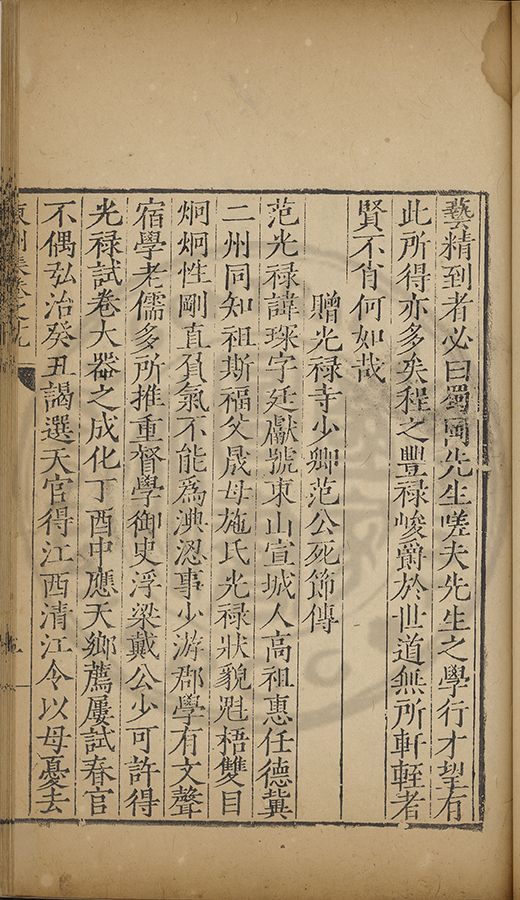 藝精到者必曰蜀閩先生嗟夫先生之學行才望有
此所得亦多矣程之豐祿峻爵於世道無所軒輊者
賢不肖何如哉
贈光祿寺少卿范公死節傳
范光祿諱琛字廷獻號東山宣城人高祖惠任德冀
二州同知祖斯福父晟母施氏光祿狀貌魁梧雙目
炯炯性剛直負氣不能為淟涊事少游郡學有文聲
宿學老儒多所推重督學御史浮梁戴公少可許得
光祿試卷大器之成化丁酉中應天鄉薦屢試春官
不偶弘治癸丑謁選天官得江西清江令以母憂去
集卷之九